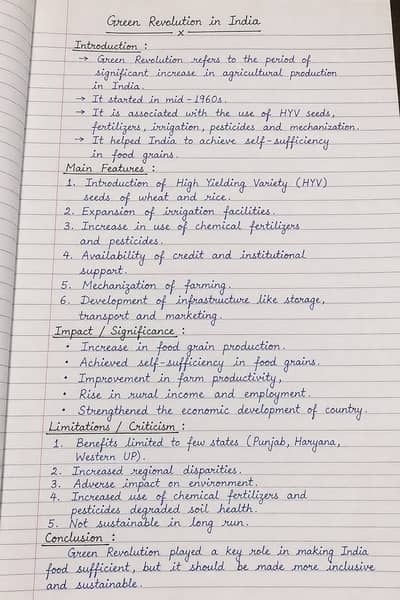 Green Revolution in India
x
Introduction :
→ Green Revolution refers to the period of
significant increase in agricultural production
in India.
→ It started in mid-1960s.
→ It is associated with the use of HYV seeds,
fertilizers, irrigation, pesticides and mechanization.
→ It helped India to achieve self-sufficiency
in food grains.
Main Features :
1. Introduction of High Yielding Variety (HYV)
seeds of wheat and rice.
2. Expansion of irrigation facilities.
3. Increase in use of chemical fertilizers
and pesticides.
4. Availability of credit and institutional
support.
5. Mechanization of farming.
6. Development of infrastructure like storage,
transport and marketing.
Impact / Significance :
• Increase in food grain production.
• Achieved self-sufficiency in food grains.
• Improvement in farm productivity,
• Rise in rural income and employment.
• Strengthened the economic development of country.
Limitations / Criticism :
1. Benefits limited to few states (Punjab, Haryana,
Western UP).
2. Increased regional disparities.
3. Adverse impact on environment.
4. Increased use of chemical fertilizers and
pesticides degraded soil health.
5. Not sustainable in long run.
Conclusion :
Green Revolution played a key role in making India
food sufficient, but it should be made more inclusive
and sustainable.